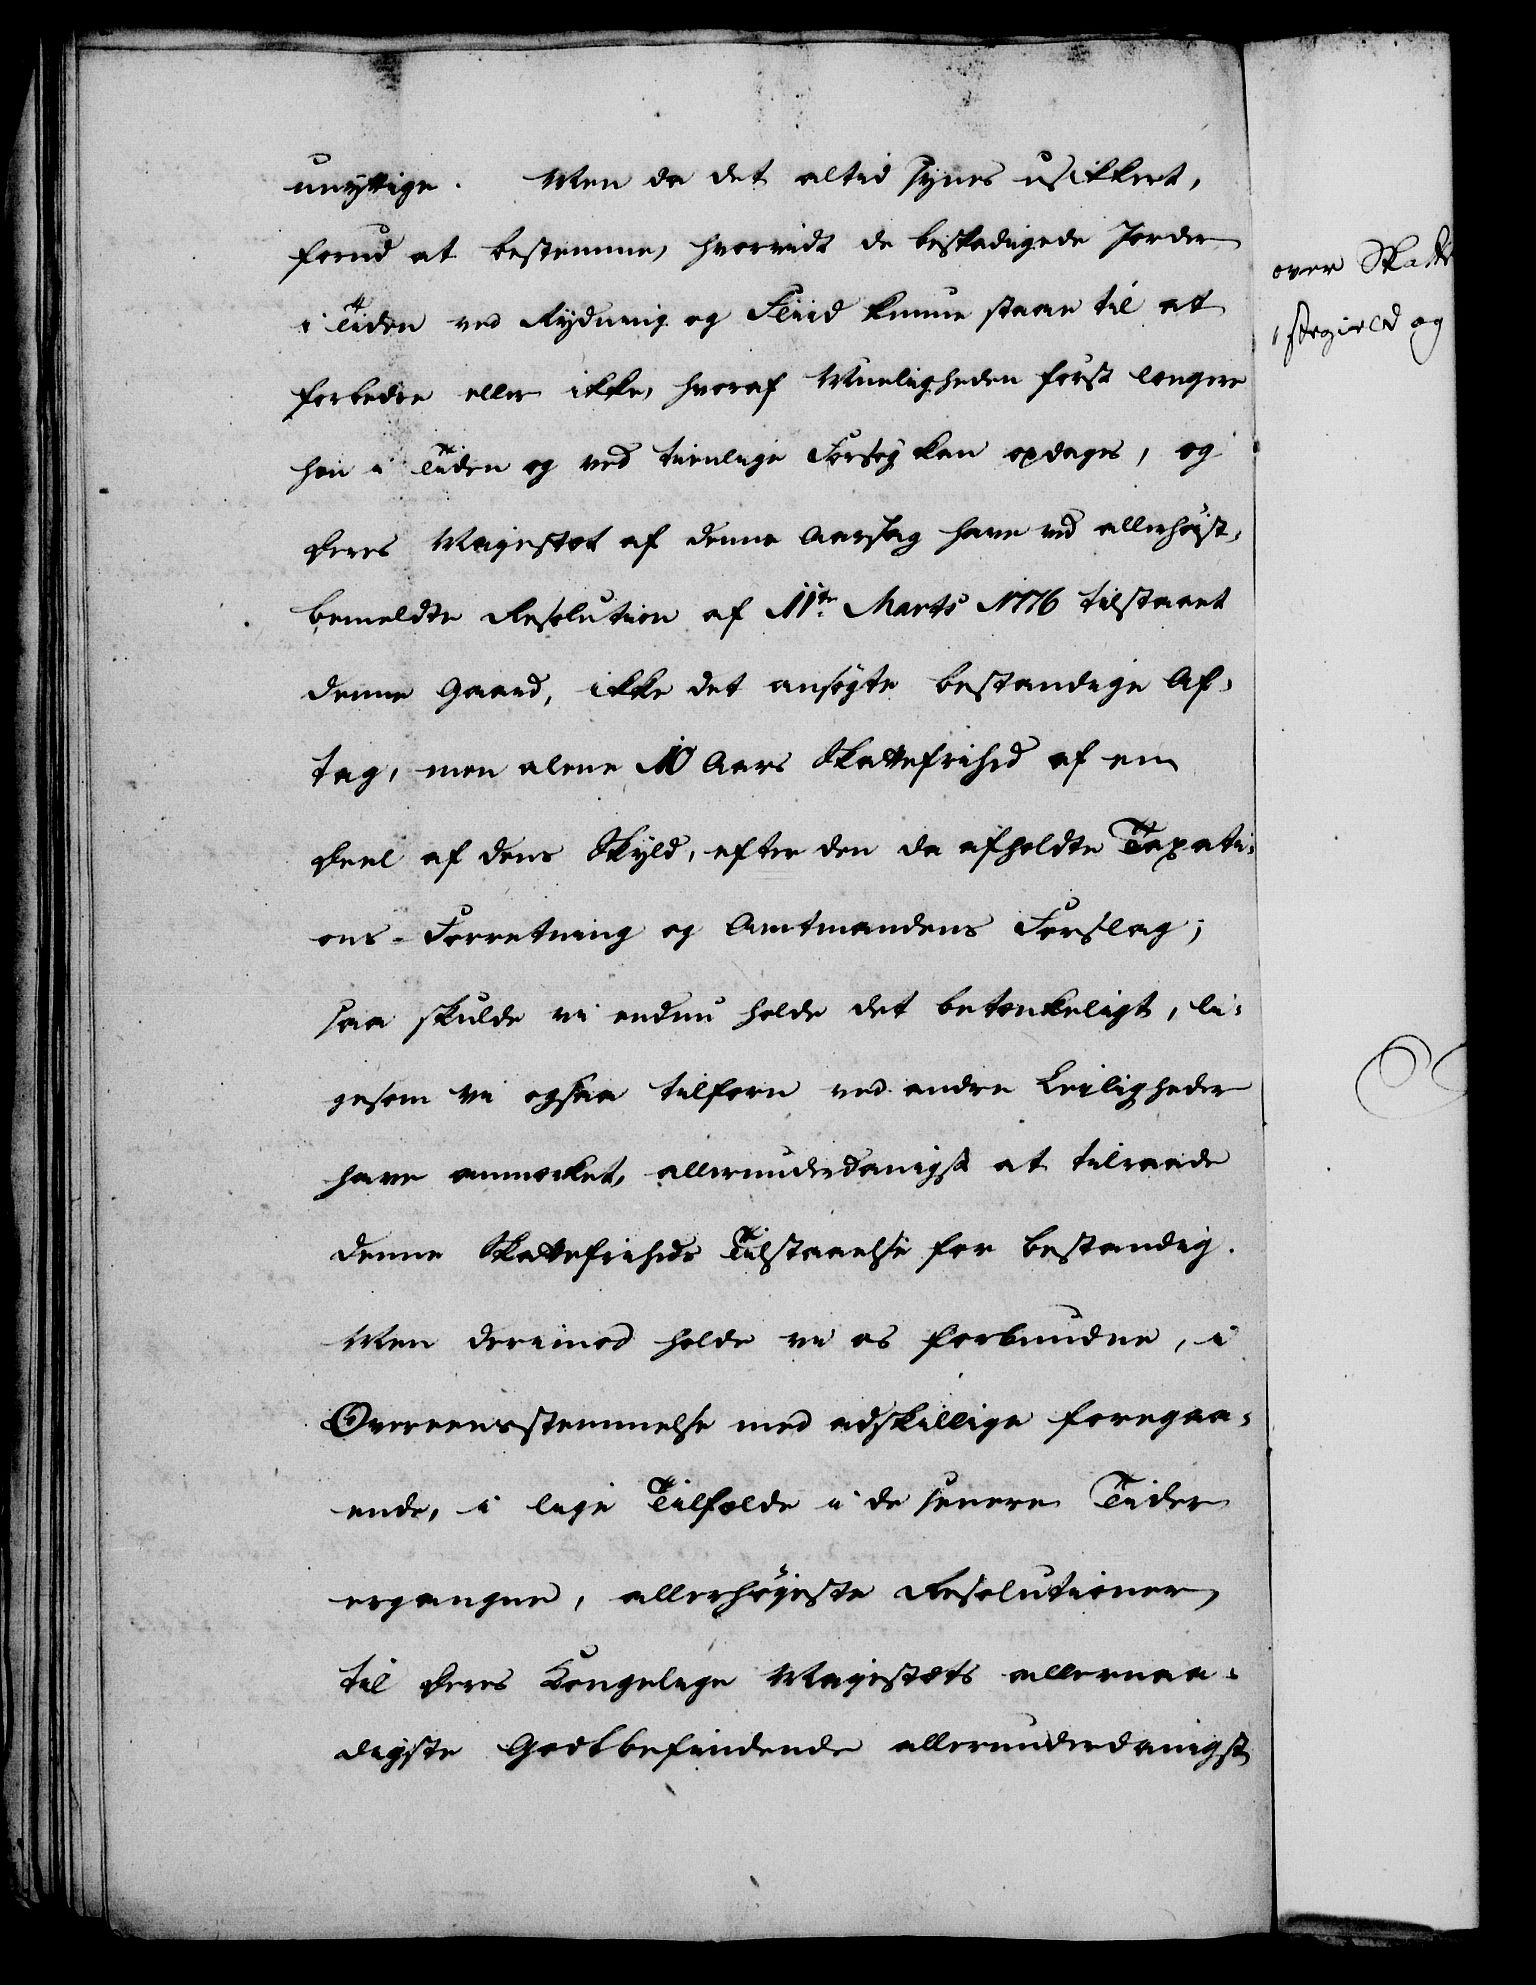 unyttige. Men da det altid synes usikkert,
forud at bestemme, hvorvidt de beskadigede Jorder
i Tiden ved Rydning og Fliid kunne staae til at
forbedre eller ikke, hvoraf Mueligheden først længere
hen i Tiden og ved tienlige Forsøg kan opdages, og
Deres Majestæt af denne Aarsag have ved allerhøist-
bemeldte Resolution af 11te Marts 1776 tilstaaet
denne Gaard, ikke det ansøgte bestandige Af-
tag, men alene 10 Aars Skattefrihed af en
Deel af dens Skyld, efter den da afholdte Taxati-
ons-Forretning og Amtmandens Forslag;
saa skulde vi endnu holde det betænkeligt, li-
gesom vi ogsaa tilforn ved andre Leiligheder
have anmærket, allerunderdanigst at tilraade
denne Skattefriheds Tilstaaelse for bestandig.
Men derimod holde vi os forbundne, i
Overeensstemmelse med adskillige foregaa-
ende, i lige Tilfælde i de senere Tider
ergangne, allerhøjeste Resolutioner,
til Deres Kongelige Majestæts allernaa-
digste Godtbefindende allerunderdanigst
over Skatte
og